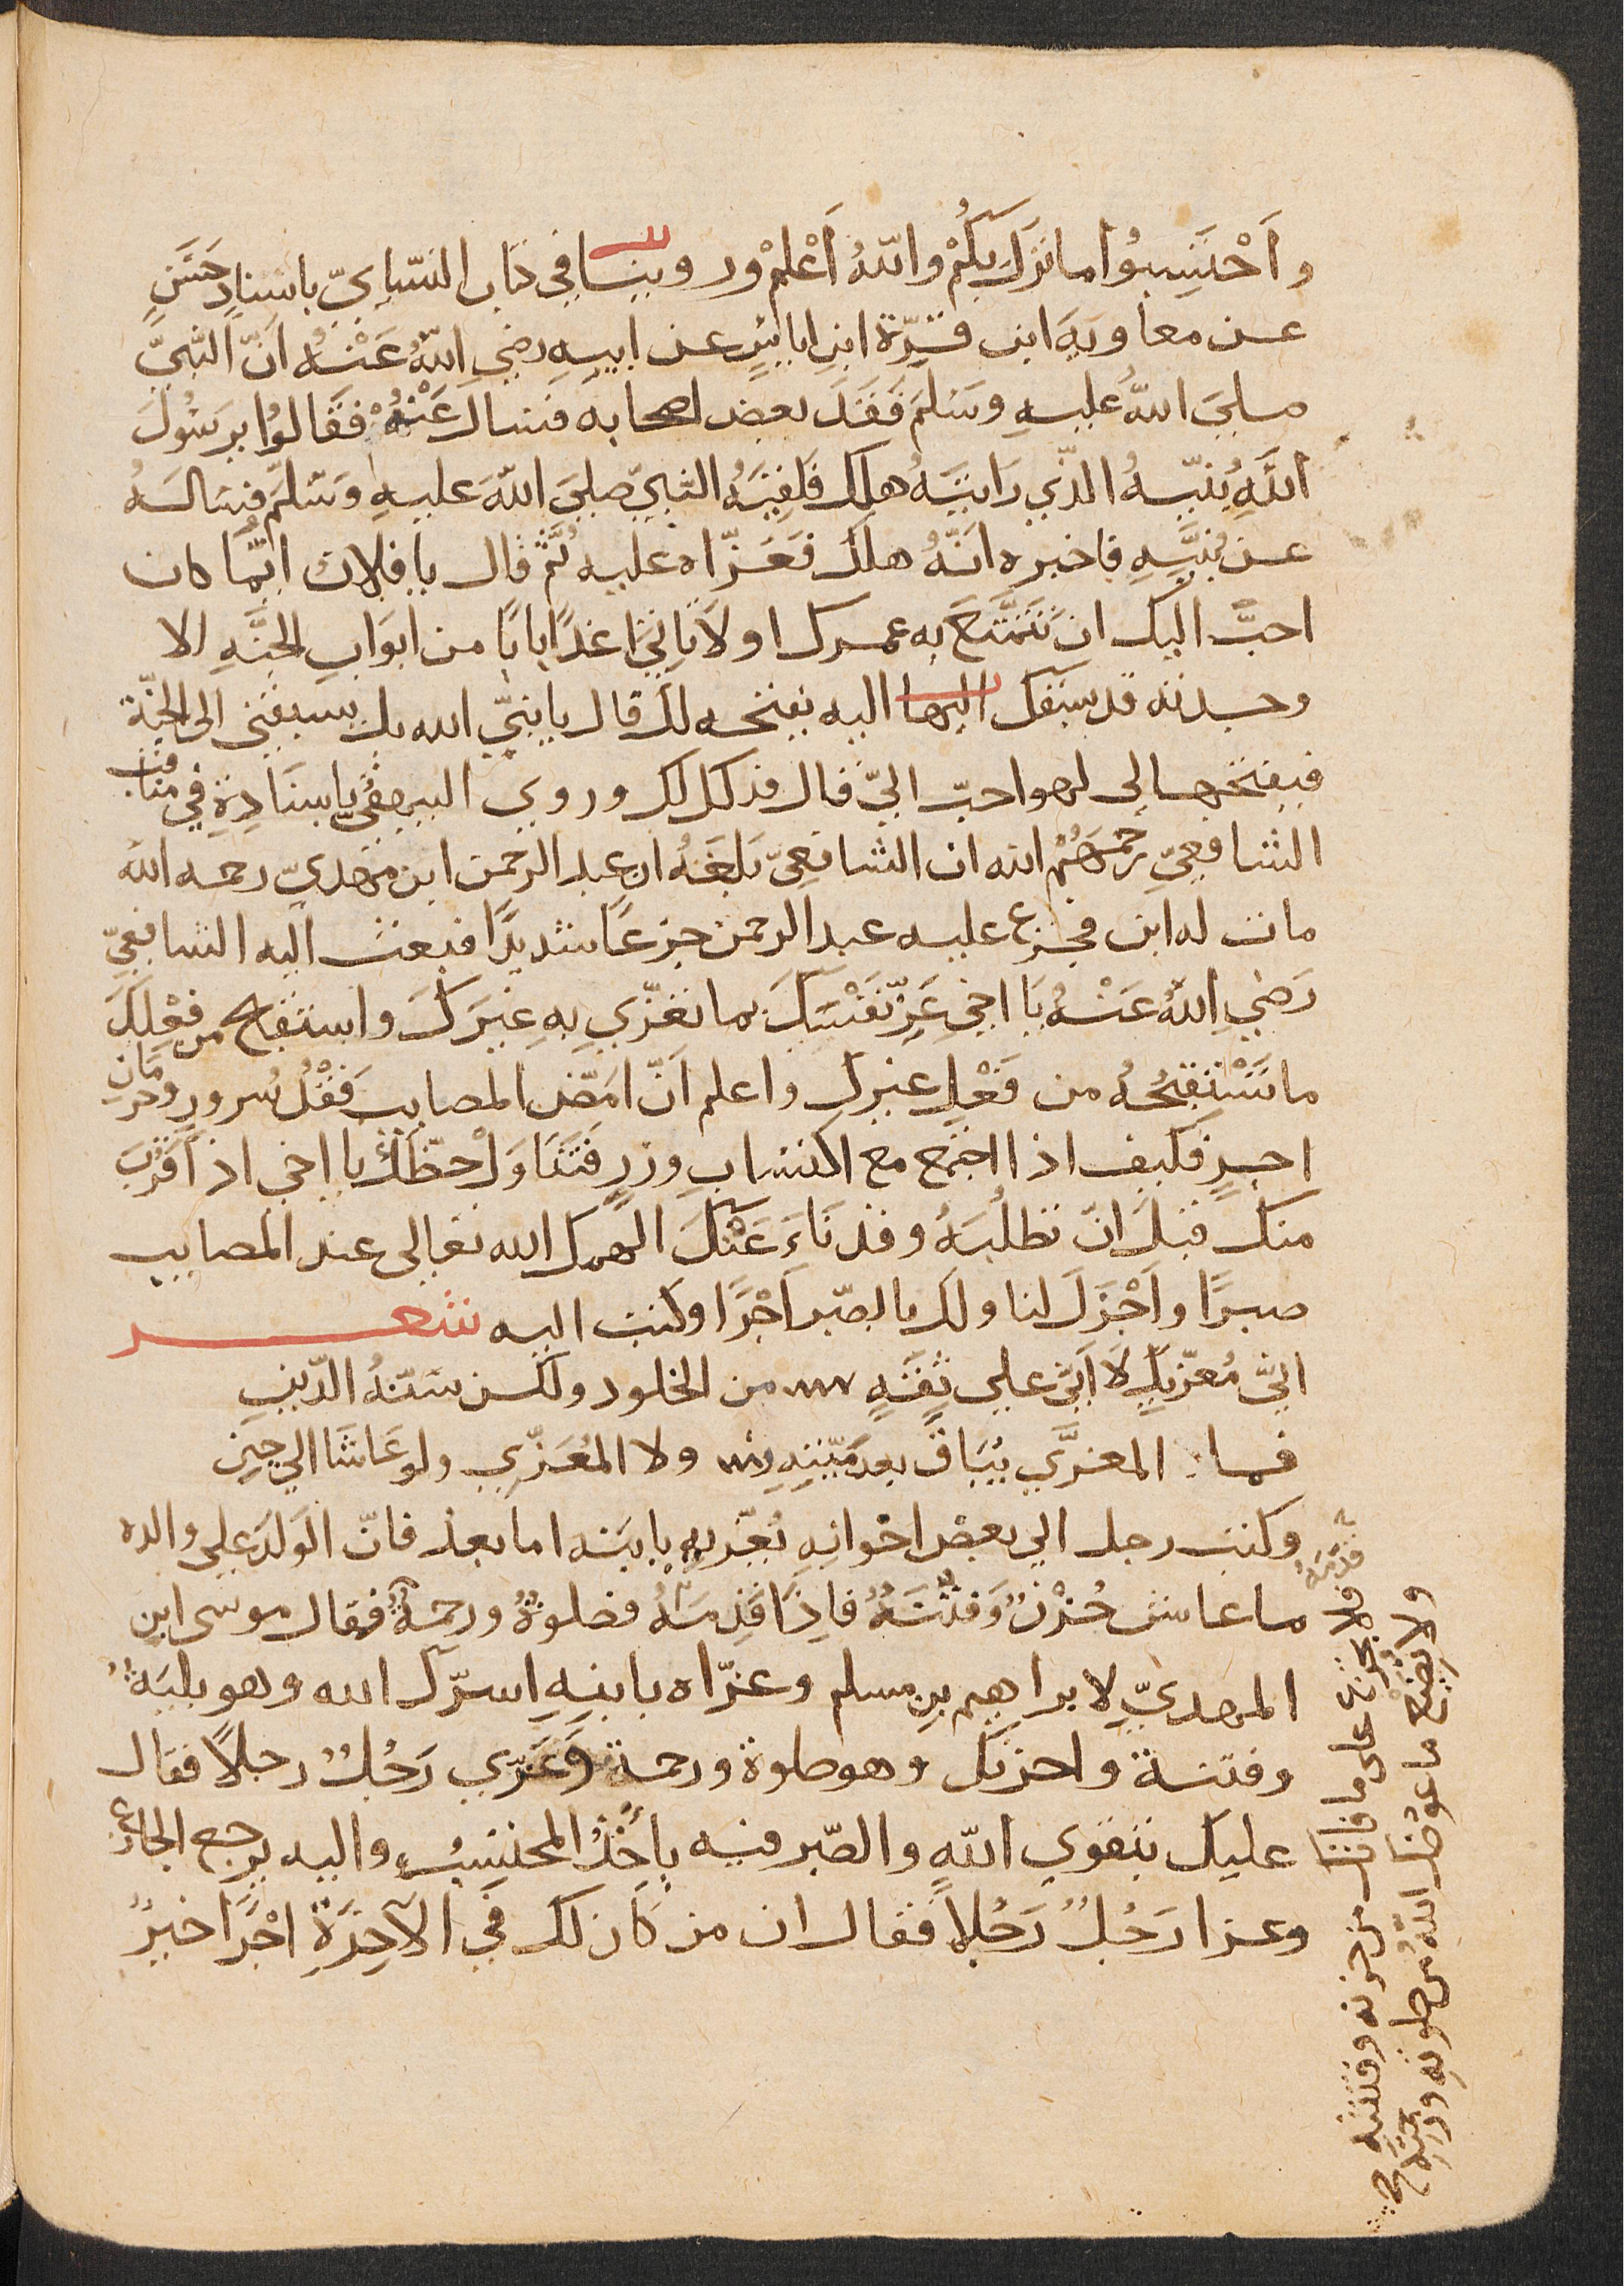 واَحْتَسِبُوا ما نزلَ بكُمْ واللهُ اَعْلمْ وروينا في كتاب النسّايّ باسنادٍ حَسَنٍ
عن معاويه ابن قرّة ابنِ اياسٍ عن ابيهِ رضي اللهُ عَنْهُ انّ النبيَّ
صلي اللهُ عليهِ وسَلمَ فقَدَ بعض اصحابه فسال عَنْهُ فقَالوُا يرسُولَ
اللهِ بُنَيّهُ الذّي رَايتَهُ هلك فَلقِيَهُ النّبيّ صليَ اللهَ عليهِ وَسَلمَّ فسالَهُ
عن بُنَيّهِ فاخبره انّهُ هلكَ فعَزّاه عليه ثُمّ قال يا فلان ايّما كان
احبّ اليك ان تتمتّعَ به عمرك او لَا تاتي غدًا بابًا من ابوَابِ الجنّهِ الا
وجدته قد سبقك اليها اليه يفتحه لك قال يا نبيّ الله بل يسبقني الى الجنّة
فيفتحها لي لهو احبّ اليّ قال فذلك لك وروي البيهقيّ باسنَادِهِ في مناقب
الشافعيّ رحَمهُمُ الله ان الشافعيّ بلغَهُ ان عبد الرحمن ابن مهديّ رحمه الله
مات له ابن فجزع عليه عبد الرحمن جزعًا شديدًا فبعث اليه الشافعيّ
رَضي اللهُ عَنْهُ يَا اخي عَزّ نفَسَكَ بما تعَزّي بهِ غيرَكَ واستقبح من فِعْلِكَ
ما تَسْتقبحُهُ من فَعْلِ غيرك واعلم اَنّ امَضّ المصايب فَقْدُ سُرورٍ وحرمَان
اجرٍ فكيف اذا اجتمع مع اكتسابِ وزرٍ فتَنَاوَلْ حظّكَ يا اخي اذا قَرُبَ
منك قبلَ انّ تطلبَهُ وقد نَاءَ عَنْكَ الهمك الله تعالى عند المصايب
صبرًا واَجْزَلَ لنا ولك بالصّبر اَجْرًا وكتب اليه شعر
انيّ مُعزّيكِ لَا انيّ علي ثِقَهٍ من الخلود ولكن سَنّهُ الدّين
فما المعزَّي بِبَاقٍ بعد مَيّتِهِ ولا المُعَزّي ولو عَاشَا الي حِينٍ
وكتب رجل الي بعض اخوانه يُعزّيهِ بابنه اما بعد فانّ الوَلدَ علي والده
ما عاش حُزْنٌ وَفتْنَهٌ فاِذَا قدّمَهُ فصَلوةٌ ورحمَةٌ فقال موسى ابن
المهديّ لابراهيم بن مسلم وعزّاه بابنِهِ اسرّك الله وهو بليَهٌ
وفتنة واحزنك وهو صلوة ورحمة وَعَزّي رَجُلٌ رجلاً فقال
عليك بتقوي اللهِ والصّبر فبه يأخُذُ المحتسِبُ واليه يرجع الجازع
وعزا رَجُلٌ رَجُلاً فقال ان من كان لك في الآخِرَةِ اجْرًا خيرٌ
قدّمَهُ
فلا تجزنه على ما فاتك من حزنه وفتنته
ولا تضيّع ما عوضك اللهُ من صلوته ورحمته